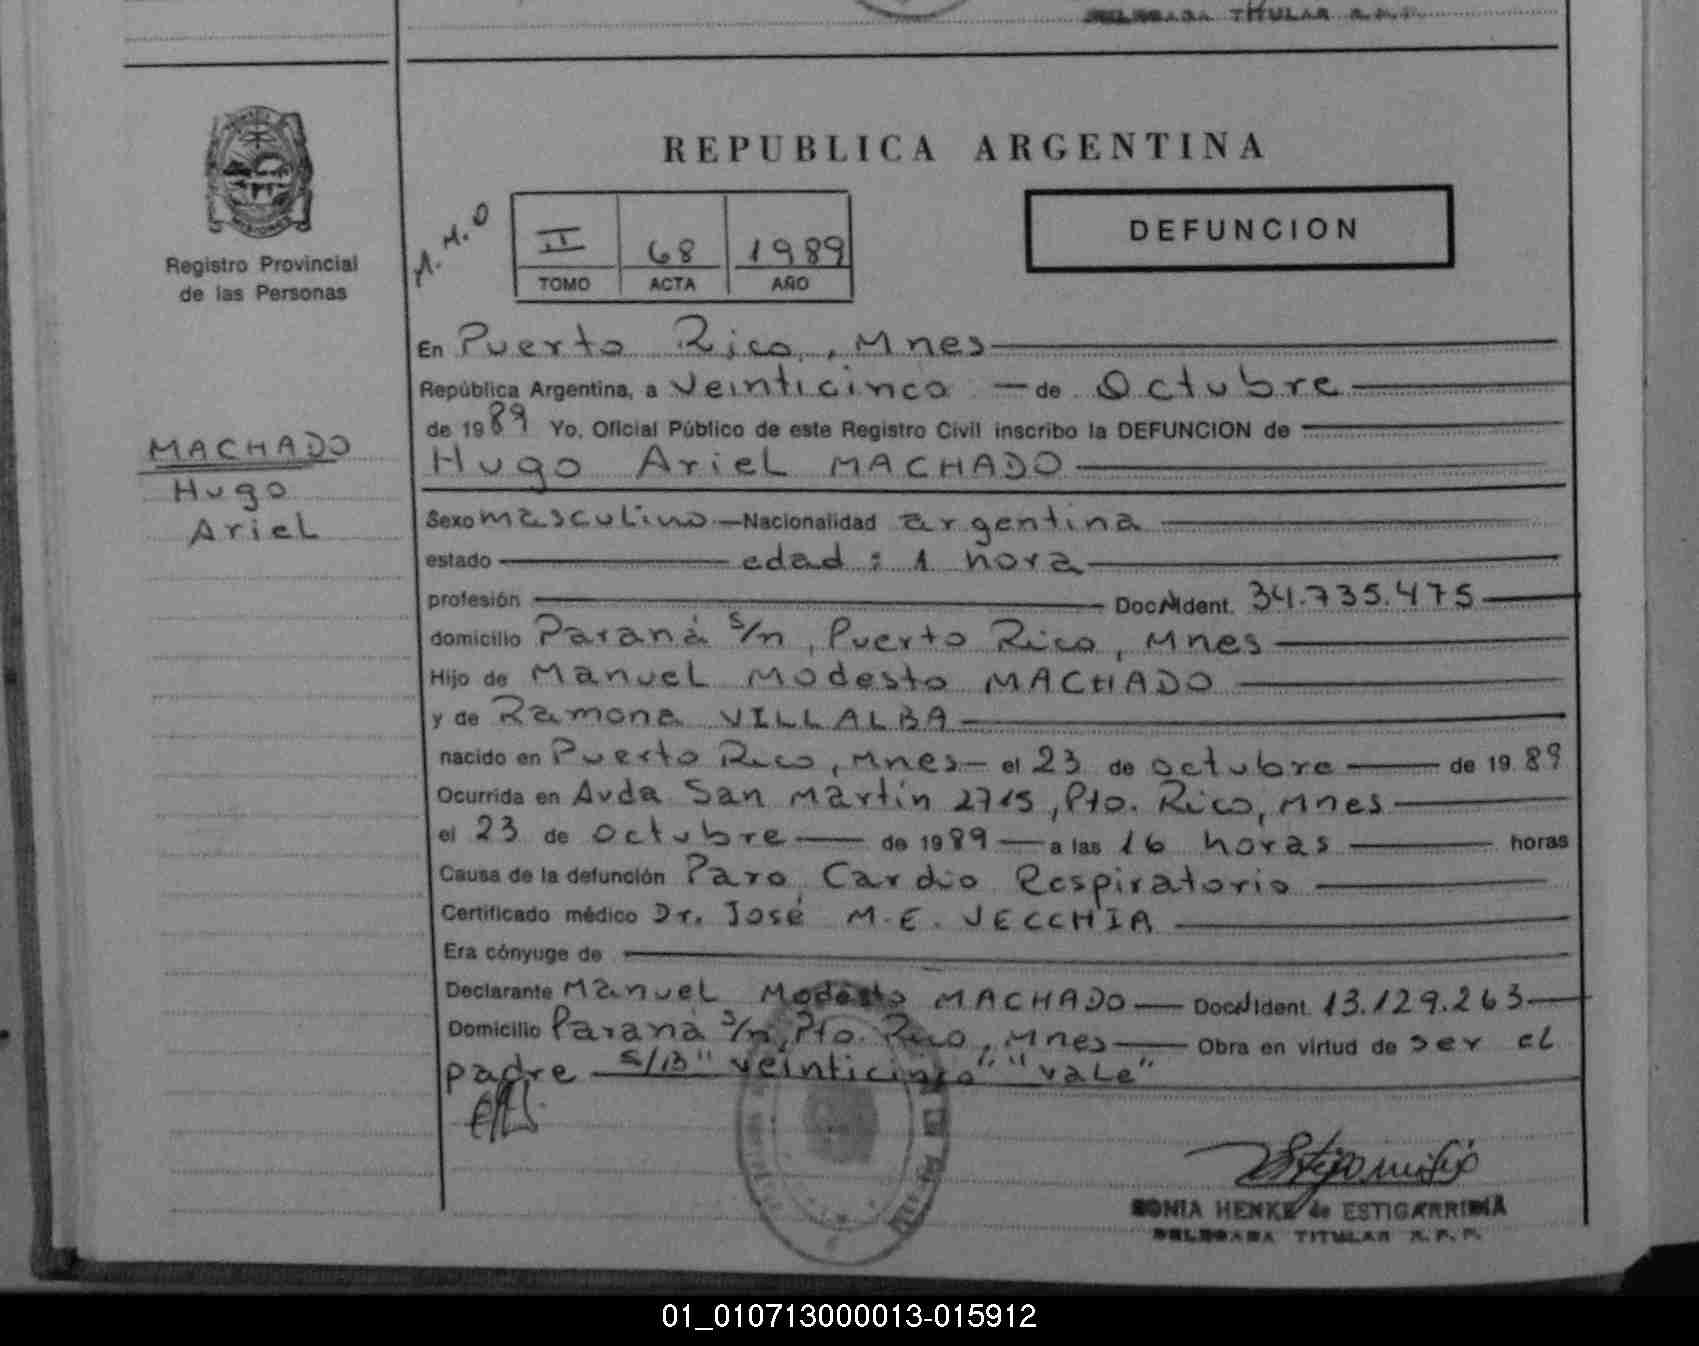 TITULAR R.P.P.
REPUBLICA ARGENTINA
DEFUNCION
II 68 1989
TOMO ACTA AÑO
Registro Provincial
de las Personas
En Puerto Rico, Mnes
República Argentina, a veinticinco de Octubre
de 1989 Yo, Oficial Público de este Registro Civil inscribo la DEFUNCION de
Hugo Ariel MACHADO
MACHADO
Hugo
Ariel
Sexo masculino Nacionalidad argentina
estado edad: 1 hora
profesión Doc. Ident. 34.735.475
domicilio Paraná s/n, Puerto Rico, Mnes
Hijo de Manuel Modesto MACHADO
y de Ramona VILLALBA
nacido en Puerto Rico, Mnes el 23 de octubre de 1989
Ocurrida en Avda San Martín 2715, Pto. Rico, Mnes
el 23 de octubre de 1989 a las 16 horas horas
Causa de la defunción Paro Cardio Respiratorio
Certificado médico Dr. José M.E. VECCHIA
Era cónyuge de
Declarante Manuel Modesto MACHADO Doc. Ident. 13.129.263
Domicilio Paraná s/n, Pto. Rico, Mnes Obra en virtud de ser el
padre s/B "veinticinco" "vale"
SONIA HENKE de ESTIGARRIBIA
DELEGADA TITULAR R.P.P.
01_010713000013-015912